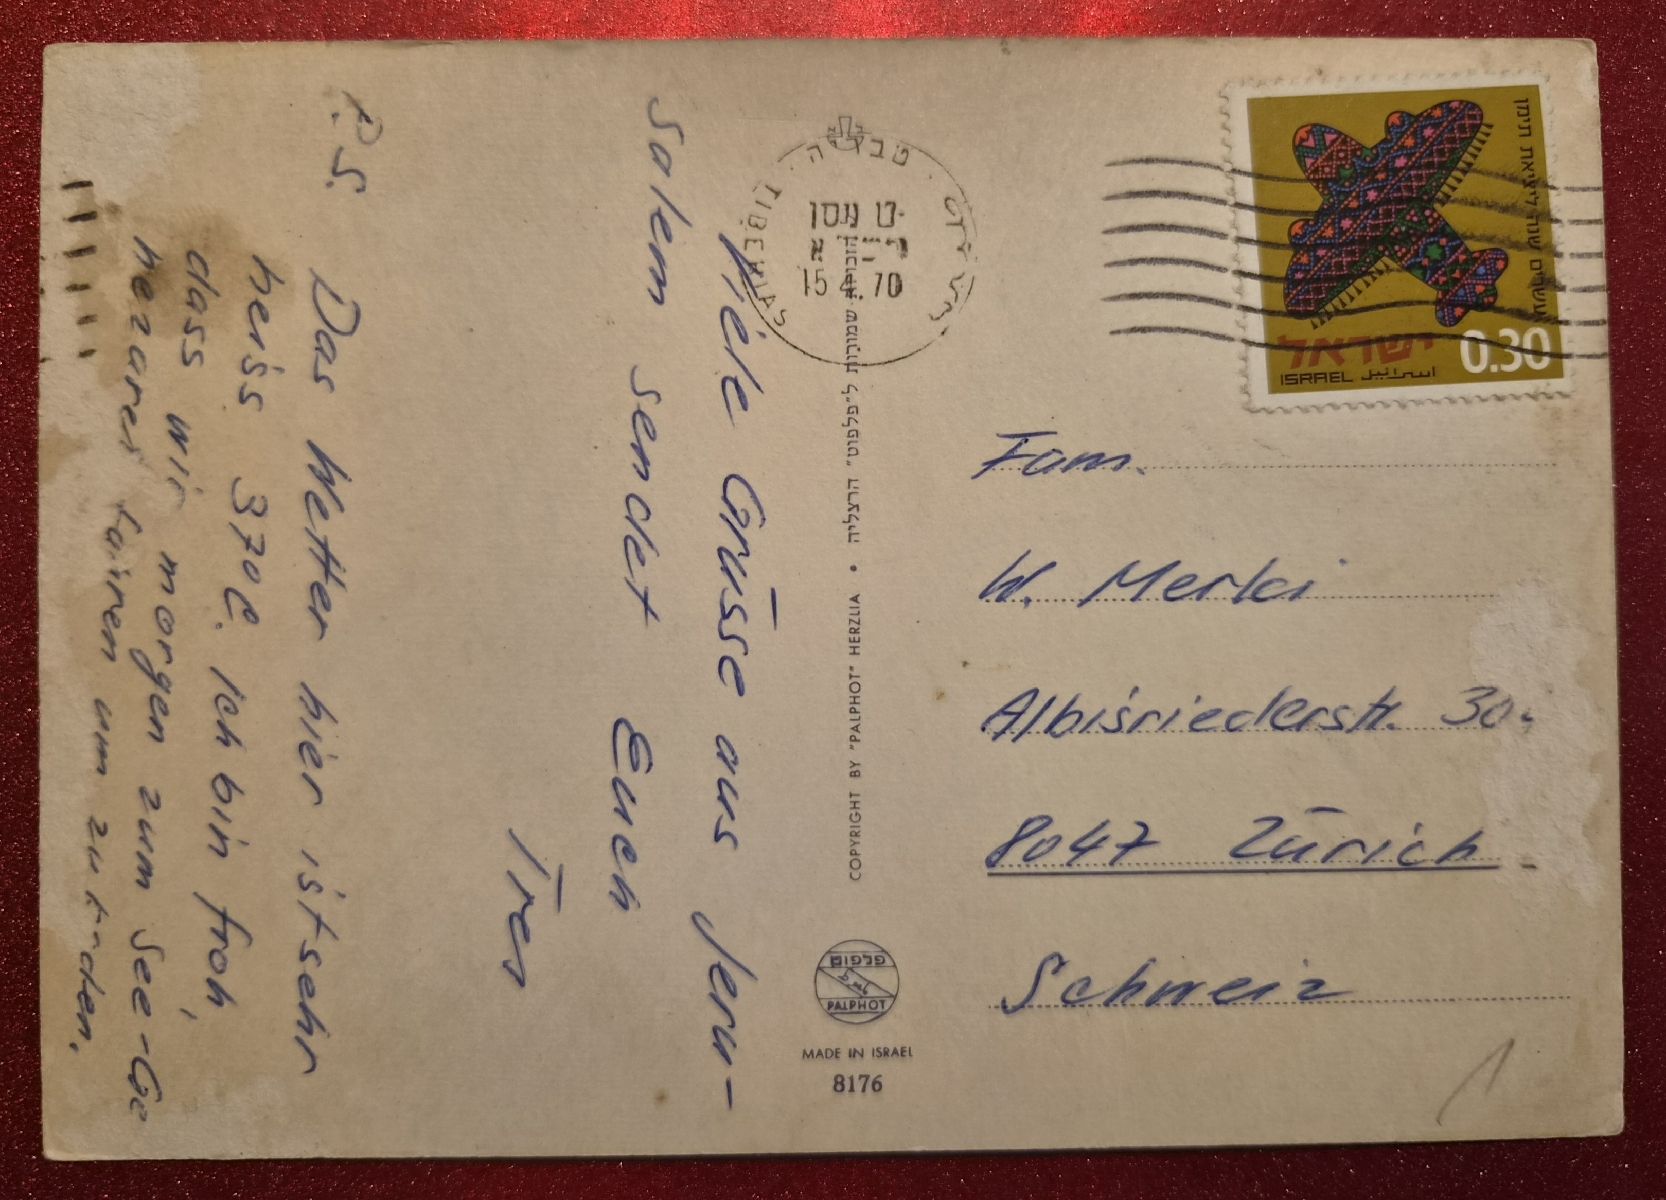 Viele Grüsse aus Jeru-
salem sendet Euch
P.S.
Das Wetter hier ist sehr
heiss 37°C. Ich bin froh,
dass wir morgen zum See-Ge
fahren um zu baden.
טבריה
TIBERIAS
ט ניסן
15 4. 70
ישראל
ISRAEL اسرائيل
0.30
Fam.
W. Merki
Albisriederstr.
8047 Zürich
Schweiz
שמורות ל"פלפוט" הרצליה • COPYRIGHT BY "PALPHOT" HERZLIA
פלפוט
PALPHOT
MADE IN ISRAEL
8176